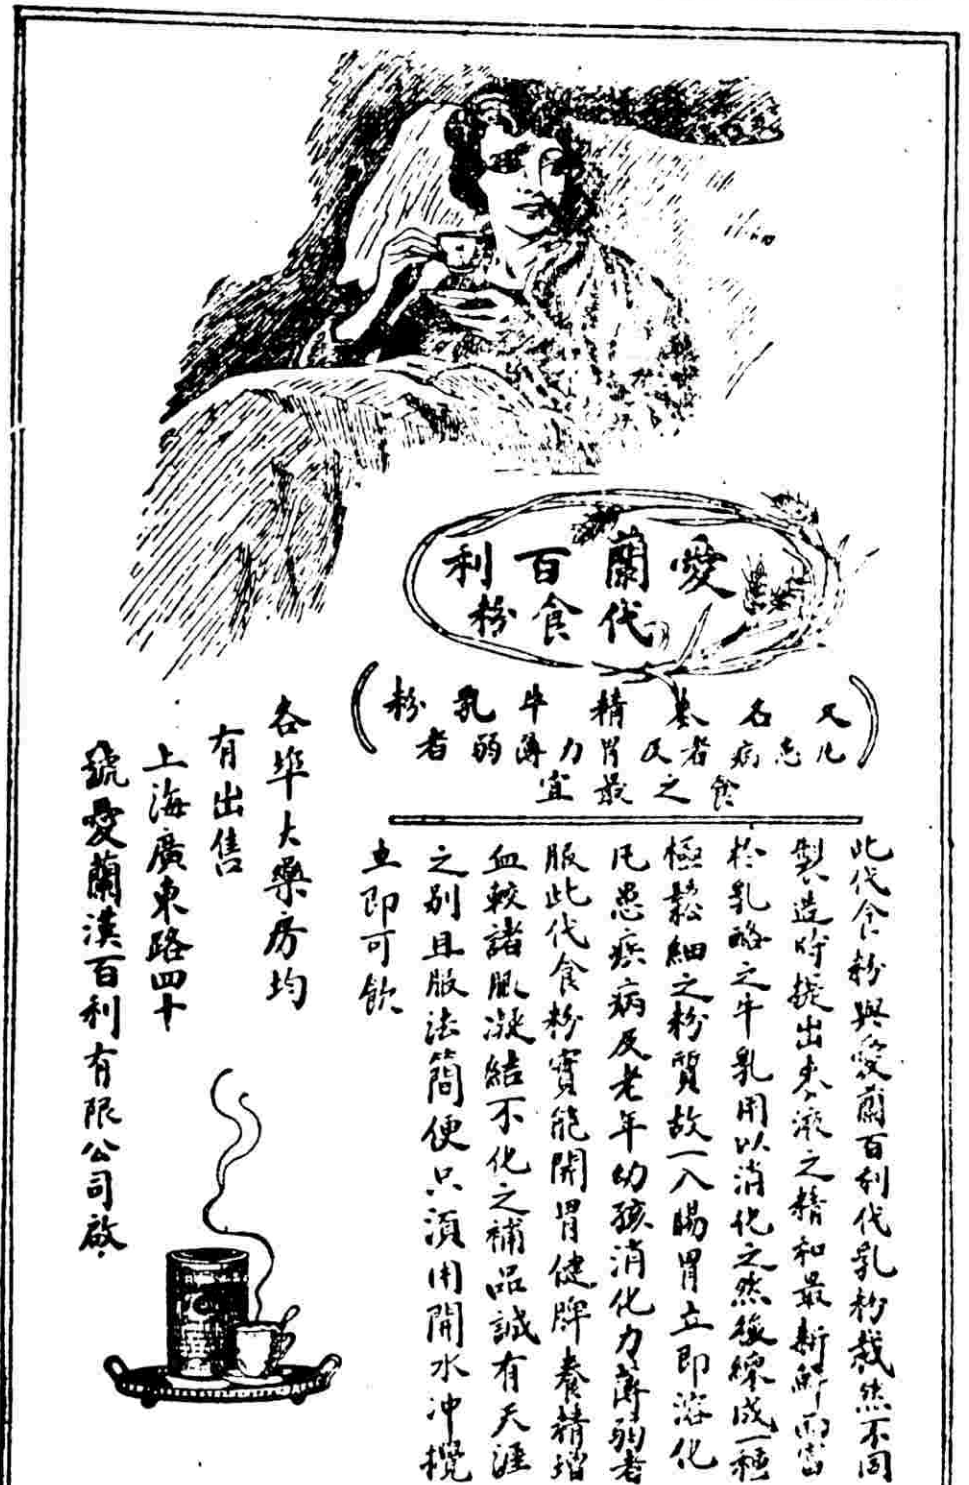 愛蘭百利
代食粉
(又名麦精牛乳粉)
凡患病者及胃力薄弱者
食之最宜
此代食粉與愛蘭百利代乳粉截然不同
製造時提出麦液之精和最新鮮而富
於乳酪之牛乳用以消化之然後煉成一種
極鬆細之粉質故一入腸胃立即溶化
凡患疾病及老年幼孩消化力薄弱者
服此代食粉實能開胃健脾養精增
血較諸服凝結不化之補品誠有天涯
之别且服法簡便只須用開水冲攪
立即可飲
各埠大藥房均
有出售
上海廣東路四十
號愛蘭漢百利有限公司啟